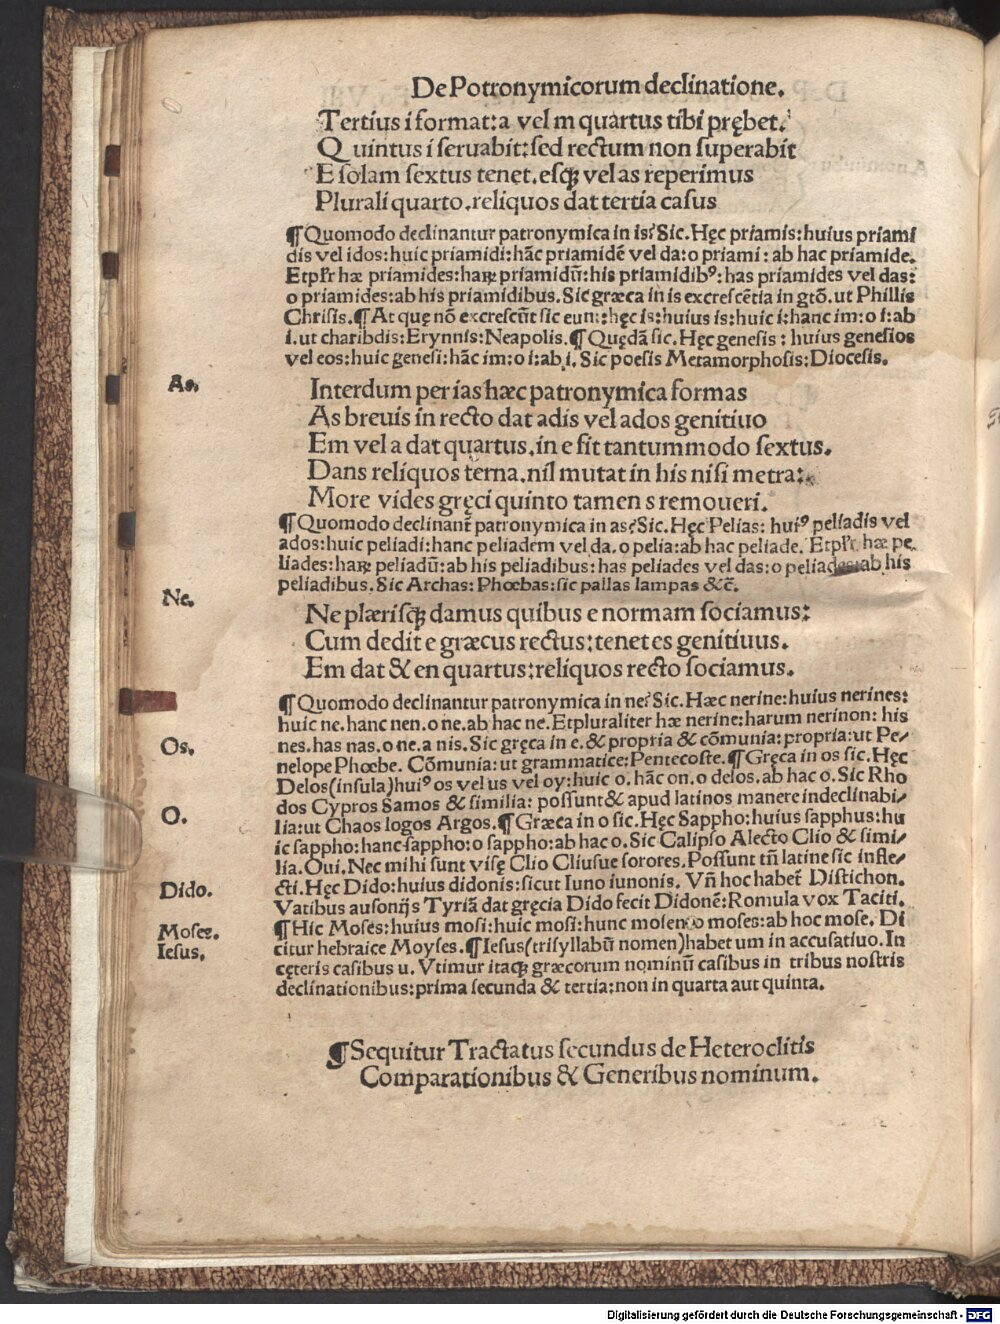 De Potronymicorum declinatione.
Tertius i format:a vel m quartus tibi prębet.
Quintus i seruabit:sed rectum non superabit
E solam sextus tenet.esqȝ vel as reperimus
Plurali quarto.reliquos dat tertia casus
¶Quomodo declinantur patronymica in is? Sic. Hęc priamis:huius priami
dis vel idos:huic priamidi:hāc priamidē vel da:o priami: ab hac priamide.
Etpl'r hæ priamides:haꝝ priamidū:his priamidibꝰ: has priamides vel das:
o priamides:ab his priamidibus. Sic græca in is excrescētia in gtō. ut Phillis
Chrisis.¶At quę nō excrescūt sic eunt:hęc is:huius is:huic i:hanc im:o i:ab
i.ut charibdis:Erynnis:Neapolis.¶Quędā sic. Hęc genesis: huius genesios
vel eos:huic genesi:hāc im:o i:ab i. Sic poesis Metamorphosis:Diocesis.
As.
Interdum per ias hæc patronymica formas
As breuis in recto dat adis vel ados genitiuo
Em vel a dat quartus.in e sit tantummodo sextus.
Dans reliquos terna.nil mutat in his nisi metra:
More vides gręci quinto tamen s remoueri.
¶Quomodo declinanť patronymica in as? Sic. Hęc Pelias: huiꝰ peliadis vel
ados:huic peliadi:hanc peliadem vel da.o pelia:ab hac peliade. Etpl'r hæ pe
liades:haꝝ peliadū:ab his peliadibus:has peliades vel das:o peliades:ab his
peliadibus. Sic Archas: Phœbas:sic pallas lampas &c̄.
Ne.
Ne plærisqȝ damus quibus e normam sociamus:
Cum dedit e græcus rectus:tenet es genitiuus.
Em dat & en quartus:reliquos recto sociamus.
¶Quomodo declinantur patronymica in ne? Sic. Hæc nerine:huius nerines:
huic ne.hanc nen.o ne.ab hac ne. Etpluraliter hæ nerine:harum nerinon: his
nes.has nas.o ne.a nis. Sic gręca in e.& propria & cōmunia: propria:ut Pe-
Os.
nelope Phœbe. Cōmunia:ut grammatice:Pentecoste.¶Gręca in os sic. Hęc
Delos(insula)huiꝰ os vel us vel oy:huic o.hāc on.o delos.ab hac o. Sic Rho
dos Cypros Samos & similia: possunt & apud latinos manere indeclinabi-
O.
lia:ut Chaos logos Argos.¶Græca in o sic. Hęc Sappho:huius sapphus:hu
ic sappho:hanc sappho:o sappho:ab hac o. Sic Calipso Alecto Clio & simi-
lia. Oui. Nec mihi sunt visę Clio Cliusue sorores. Possunt tn̄ latine sic infle-
Dido.
cti. Hęc Dido:huius didonis:sicut Iuno iunonis. Vn̄ hoc habeť Distichon.
Vatibus ausonijs Tyriā dat gręcia Dido fecit Didonē:Romula vox Taciti.
Moses.
¶Hic Moses:huius mosi:huic mosi:hunc mosen:o moses:ab hoc mose. Di
Iesus.
citur hebraice Moyses.¶Iesus(trisyllabū nomen)habet um in accusatiuo. In
cęteris casibus u. Vtimur itaqȝ græcorum nominū casibus in tribus nostris
declinationibus:prima secunda & tertia:non in quarta aut quinta.
¶Sequitur Tractatus secundus de Heteroclitis
Comparationibus & Generibus nominum.
Digitalisierung gefördert durch die Deutsche Forschungsgemeinschaft - DFG